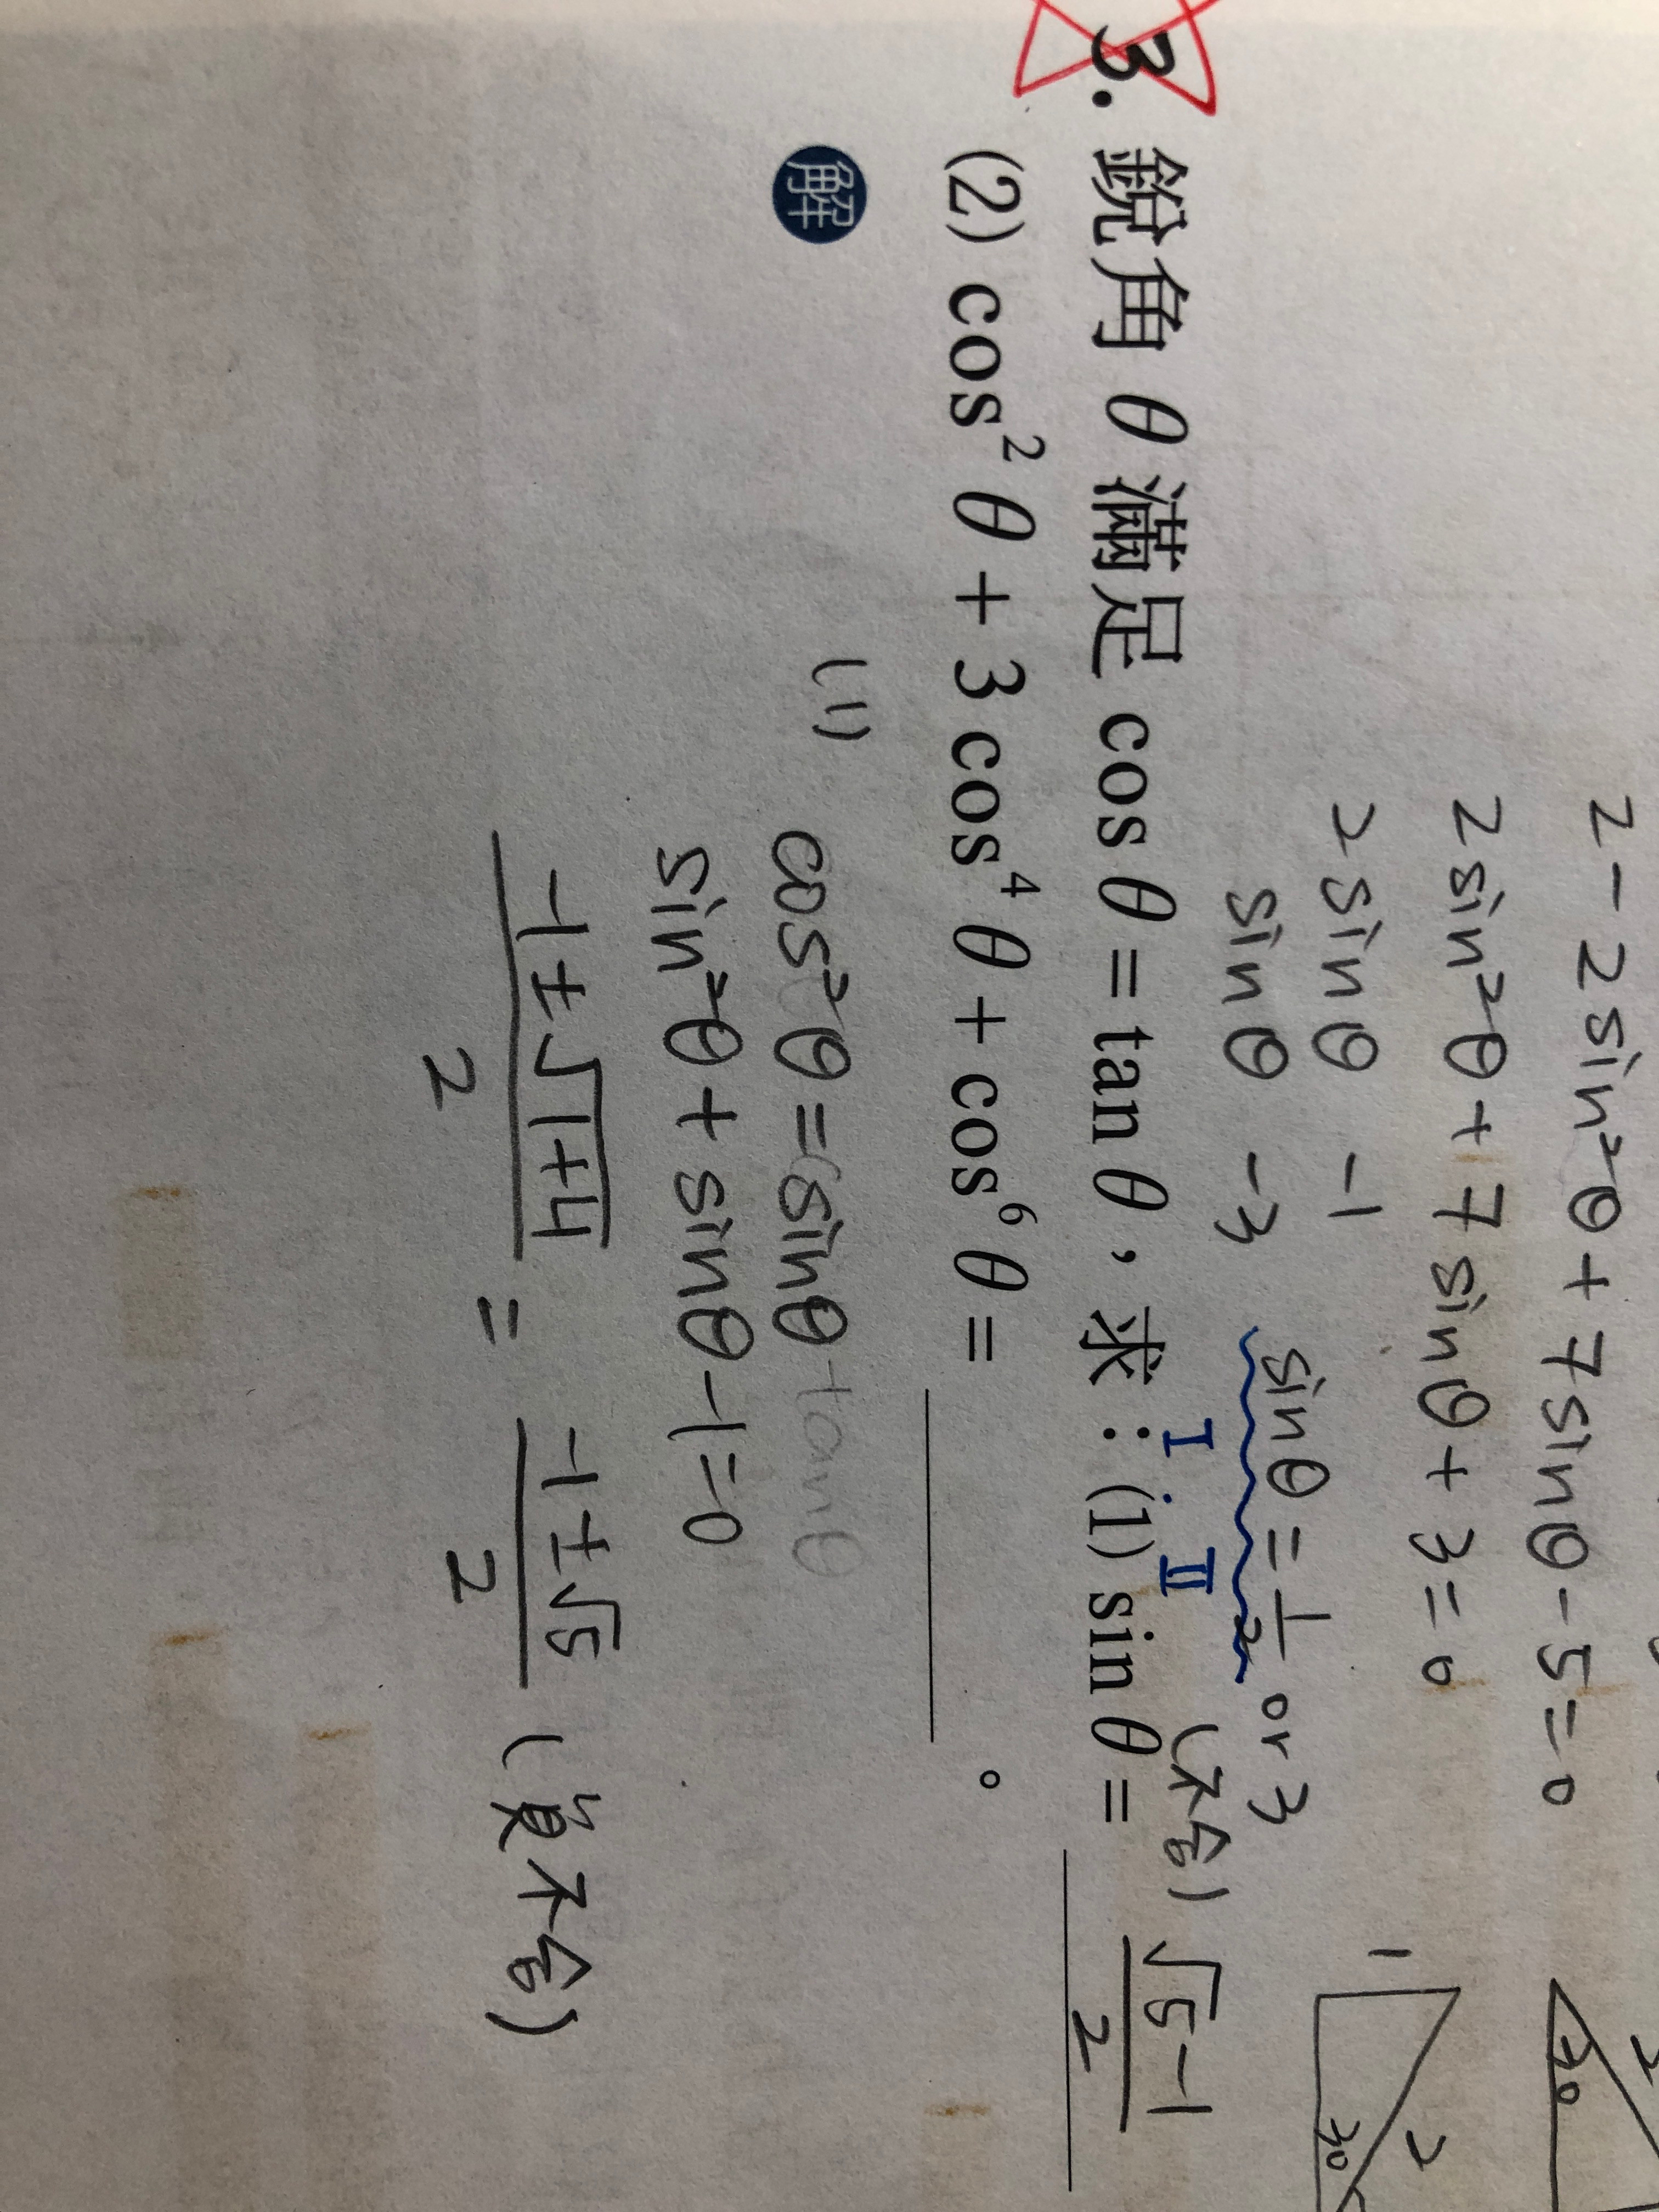 2 - 2sin²θ + 7sinθ - 5 = 0
2sin²θ + 7sinθ + 3 = 0
2sinθ -1
sinθ -3
sinθ = 1/2 or 3
(不合)
I i II
3. 銳角 θ 滿足 cos θ = tan θ，求：(1) sin θ = (√5-1)/2
(2) cos² θ + 3 cos⁴ θ + cos⁶ θ = ______。
解
(1) cos²θ = sinθ tanθ
sin²θ + sinθ - 1 = 0
(-1±√(1+4))/2 = (-1±√5)/2 (負不合)
1
2
30
30